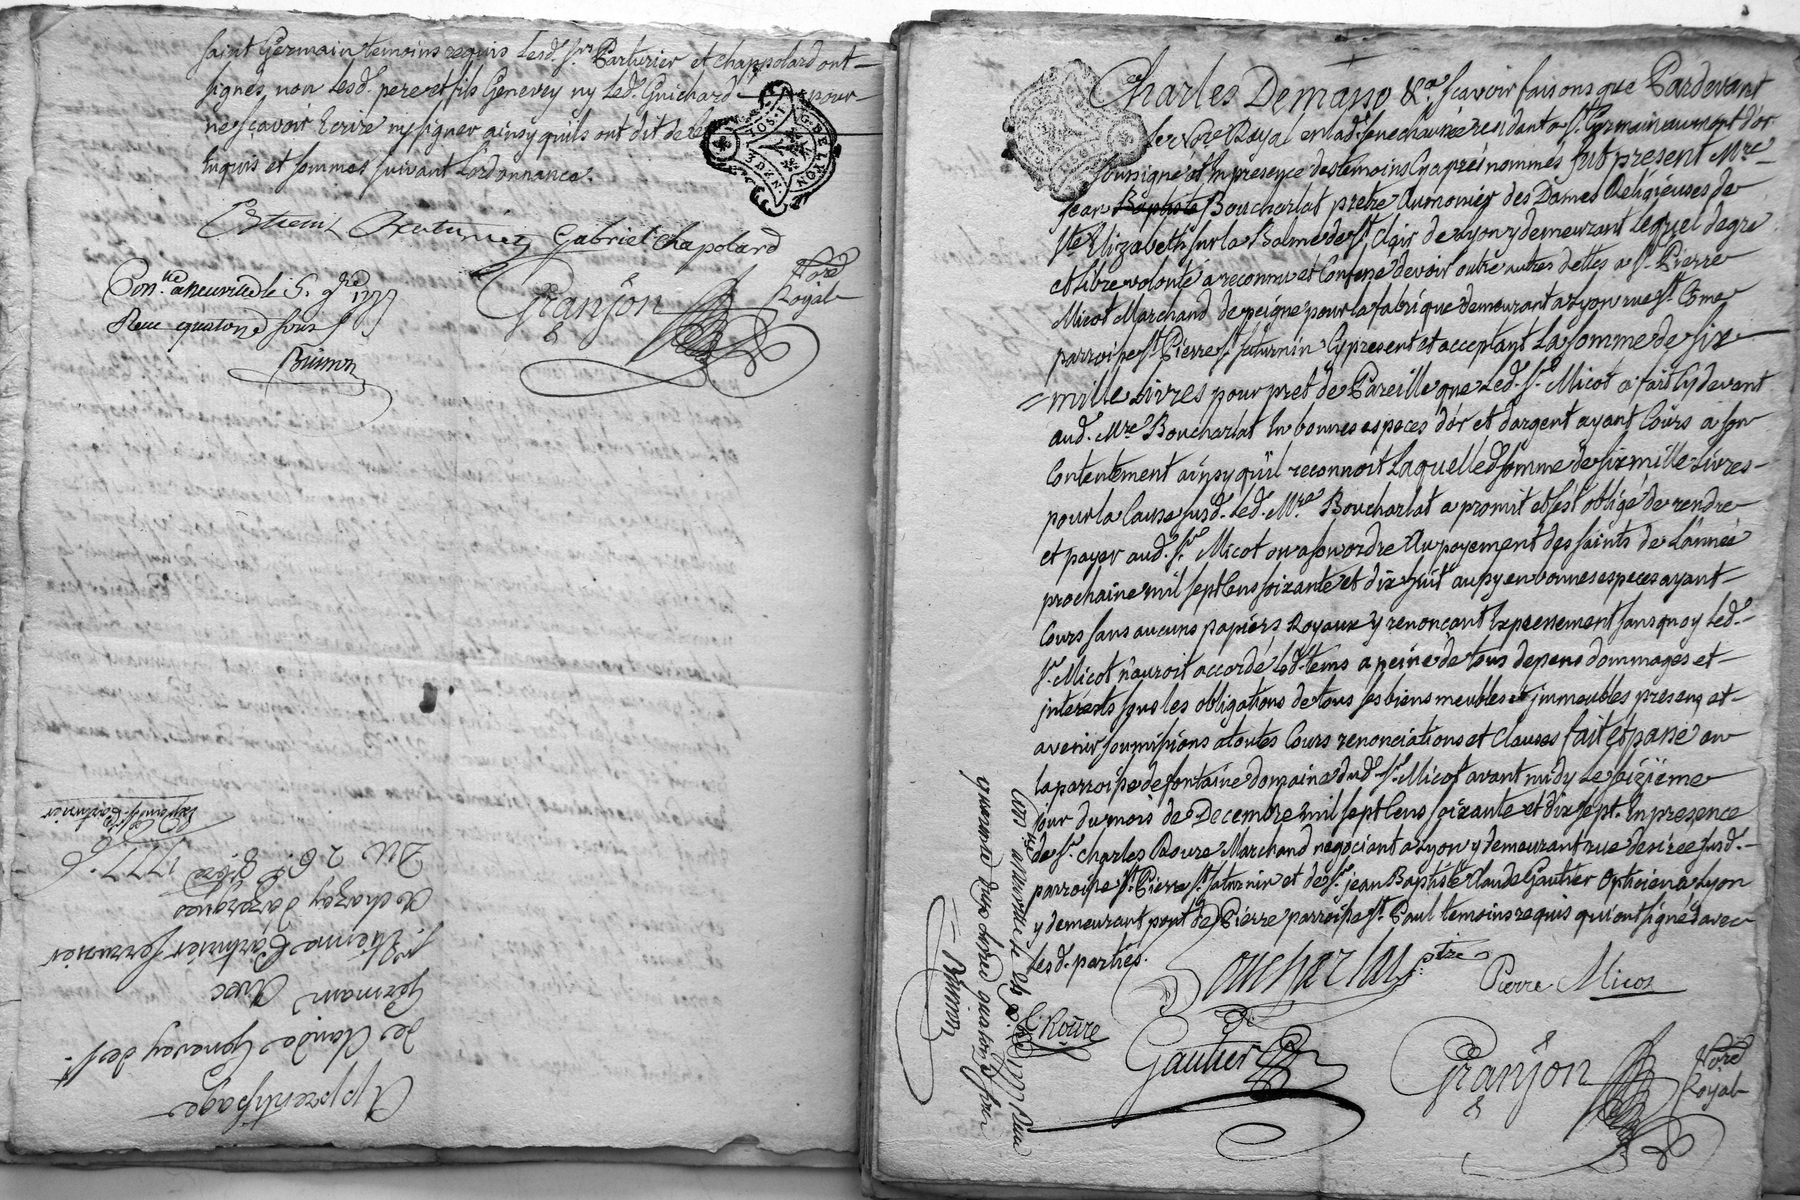 saint Germain temoins requis Lesd. Srs. Parturier et chappolard ont
signés, non Lesd. pere et fils Genevey ny Led. Guichard pour
ne sçavoir Ecrire ny signer ainsy quils ont dit de ce
Enquis et sommes suivant Lordonnance.
Gabriel Chapolard
Granjon Nore Royal
Con.lle a neuville le 5. 9bre 1777
Reçu quatorze sous
Buisson
Apprentissage
de Claude Genevey de St.
Germain Avec
S. Etienne Parturier serrurier
a chazey dazergues
Du 26. 8bre 1777.
Charles Demasso &a. sçavoir faisons que Pardevant
le Nore Royal en lad. senechaussée residant a St. Germain au mont d'or
soussigné et En presence des temoins cy après nommés fut present Mre.
jean Baptiste Boucharlat pretre Aumonier des Dames Religieuses de
Ste. Elizabeth sur la Balme de St. Clair de Lyon y demeurant Lequel de gre
et Libre volonté a reconnu et Confessé devoir outre autres dettes a Sr. Pierre
Micot Marchand de peigne pour la fabrique demeurant a Lyon rue St. Come
parroisse St. Pierre St. saturnin Cy present et acceptant La somme de six
mille Livres pour pret de Pareille que Led. Sr. Micot a fait Cy devant
aud. Mre. Boucharlat En bonnes especes d'or et d'argent ayant Cours a son
Contentement ainsy qu'il reconnoit Laquelle d. somme de six mille Livres
pour la Cause susd. Led. Mre. Boucharlat a promit et s'est obligé de rendre
et payer aud. Sr. Micot ou a son ordre Au payement des saints de L'année
prochaine mil sept Cens soixante et dix huit aussy en bonnes especes ayant
Cours sans aucuns papiers Royaux y renonçant Expressement sans quoy Led.
Sr. Micot n'auroit accordé Led. tems a peine de tous depens dommages et
interets sous les obligations de tous ses biens meubles et immeubles presens et
avenir soumissions a toutes Cours renonciations et clauses fait et passé en
la parroisse de fontaine domaine dud. Sr. Micot avant midy Le seizième
jour du mois de Decembre mil sept Cens soixante et dix sept. En presence
de Sr. Charles Roure Marchand negociant a Lyon y demeurant rue desirée susd.
parroisse St. Pierre St. saturnin et de Sr. jean Baptiste Claude Gautier Opticien a Lyon
y demeurant pont de Pierre parroisse St. Paul temoins requis qui ont signés avec
lesd. parties.
Boucharlat ptre
Pierre Micot
C. Roure
Gautier
Granjon Nore Royal
Con.lle a neuville le 1777 Reçu
quatorze sous
Buisson